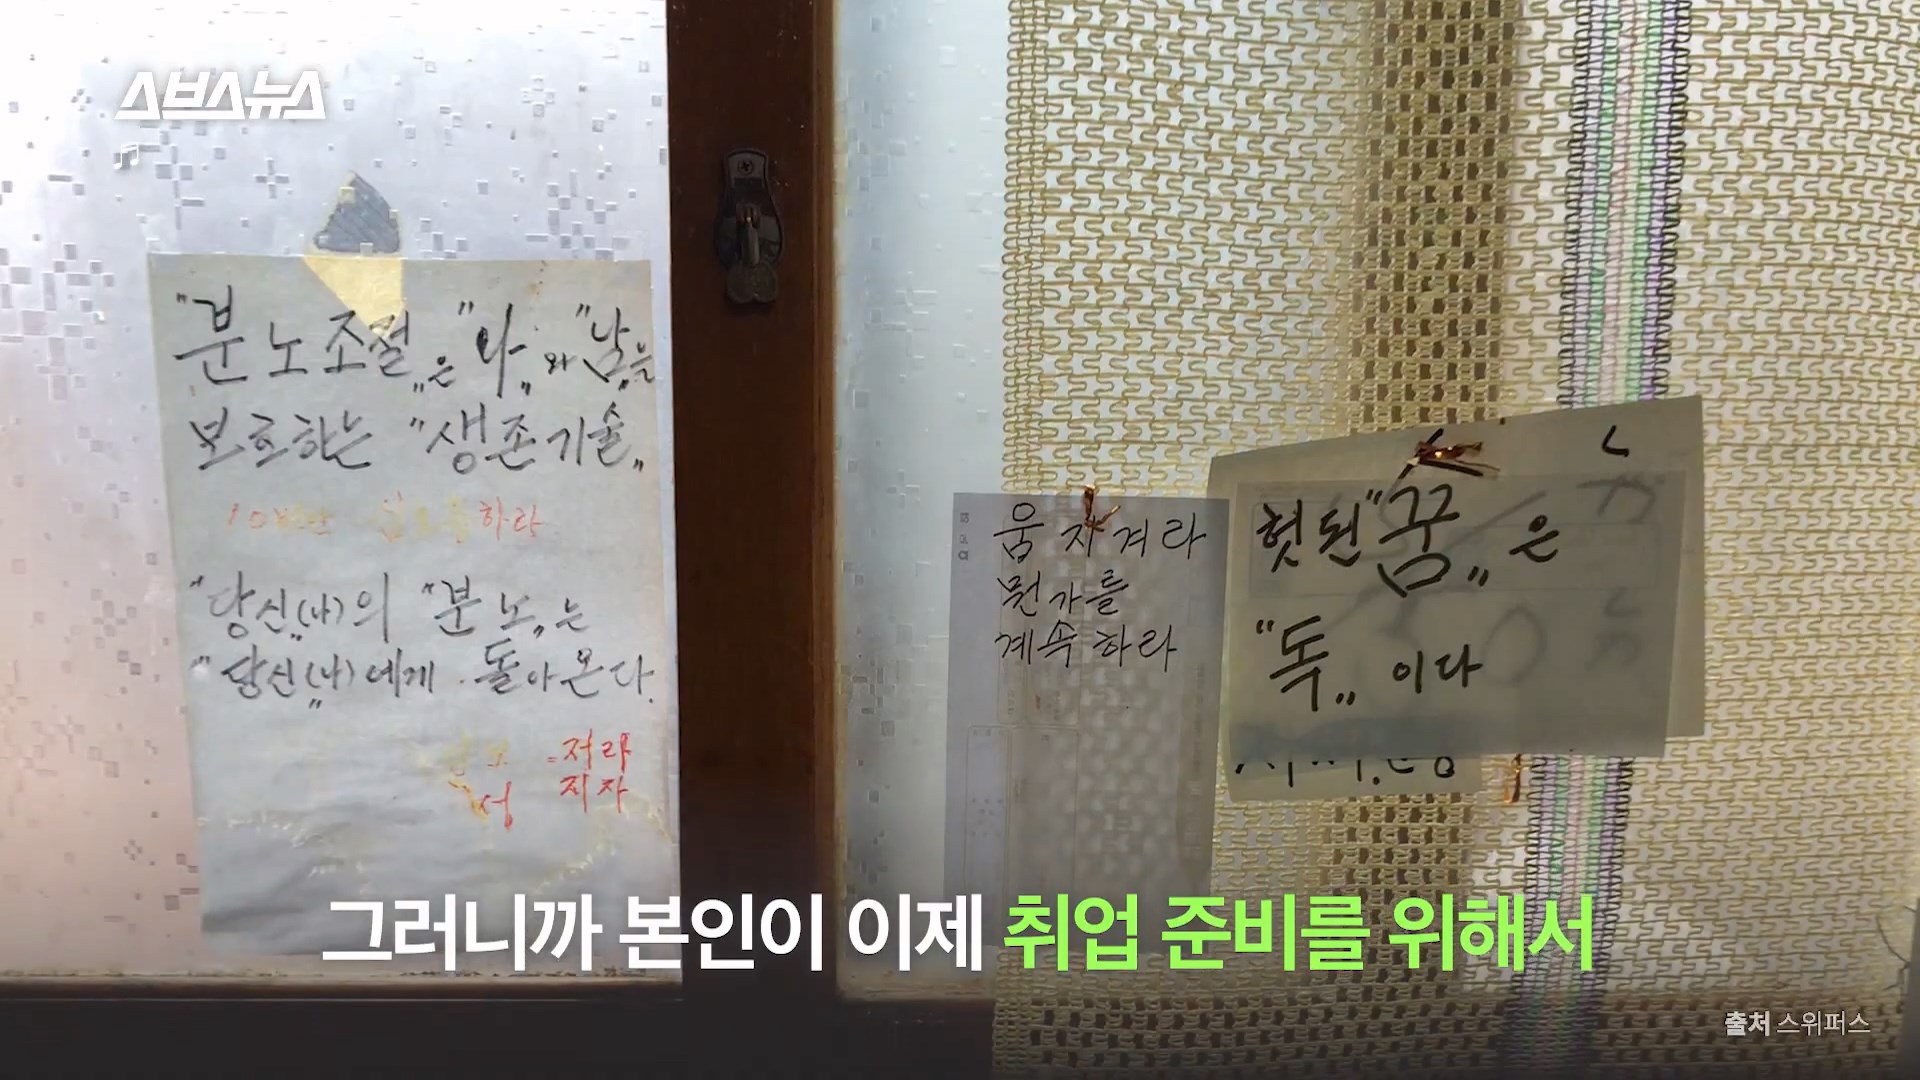 스브스뉴스
"분노조절„은 "나„와 "남„을
보호하는 "생존기술„
하라
"당신„(나)의 "분노„는
"당신„(나)에게 돌아온다.
움자겨라
뭔가를
계속하라
헛된 "꿈„은
"독„이다
그러니까 본인이 이제 취업 준비를 위해서
출처 스위퍼스